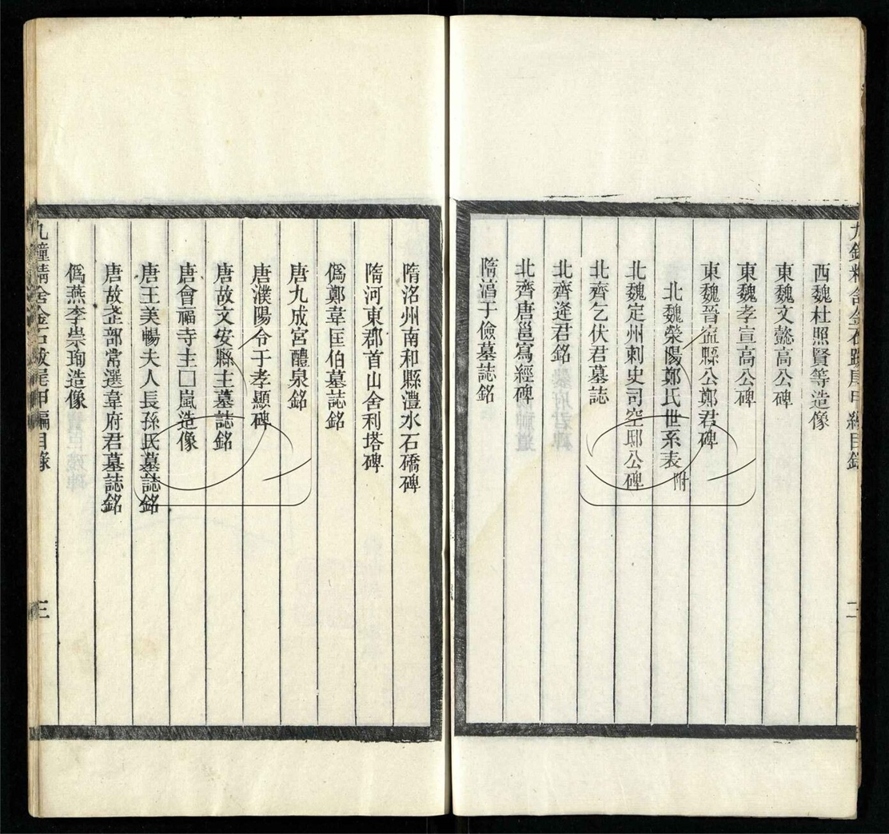 九鐘精舍金石跋尾甲編目錄 二
西魏杜照賢等造像
東魏文懿高公碑
東魏孝宣高公碑
東魏晉甯縣公鄭君碑
北魏滎陽鄭氏世系表附
北魏定州刺史司空邸公碑
北齊乞伏君墓誌
北齊逄君銘
北齊唐邕寫經碑
隋湻于儉墓誌銘
隋洺州南和縣澧水石橋碑
隋河東郡首山舍利塔碑
僞鄭韋匡伯墓誌銘
唐九成宮醴泉銘
唐濮陽令于孝顯碑
唐故文安縣主墓誌銘
唐會福寺主□嵐造像
唐王美暢夫人長孫氏墓誌銘
唐故部常選韋府君墓誌銘
僞燕李崇珣造像
九鐘精舍金石跋尾甲編目錄 三